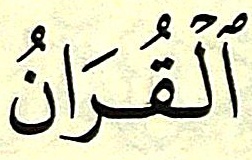 ٱلۡقُرَانُ